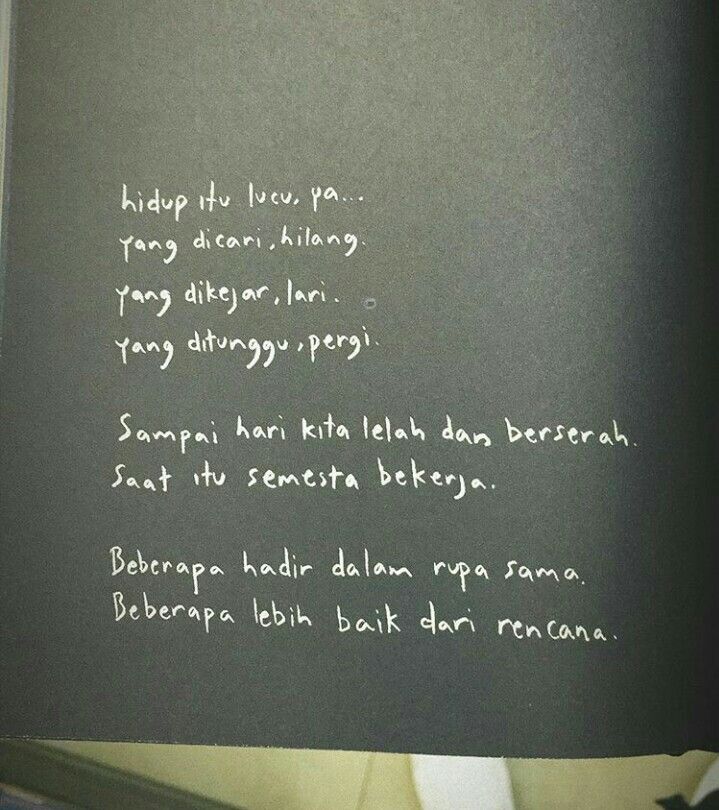 hidup itu lucu, ya...
yang dicari, hilang.
yang dikejar, lari.
yang ditunggu, pergi.
Sampai hari kita lelah dan berserah.
Saat itu semesta bekerja.
Beberapa hadir dalam rupa sama.
Beberapa lebih baik dari rencana.